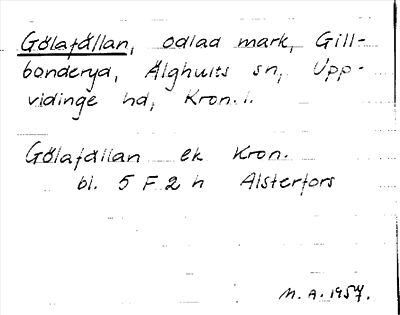 Gölafällan, odlad mark, Gill-
bonderyd, Älghults sn, Upp-
vidinge hd, Kron. l.
Gölafällan ek Kron.
bl. 5 F 2 h Alsterfors
M. A. 1957.